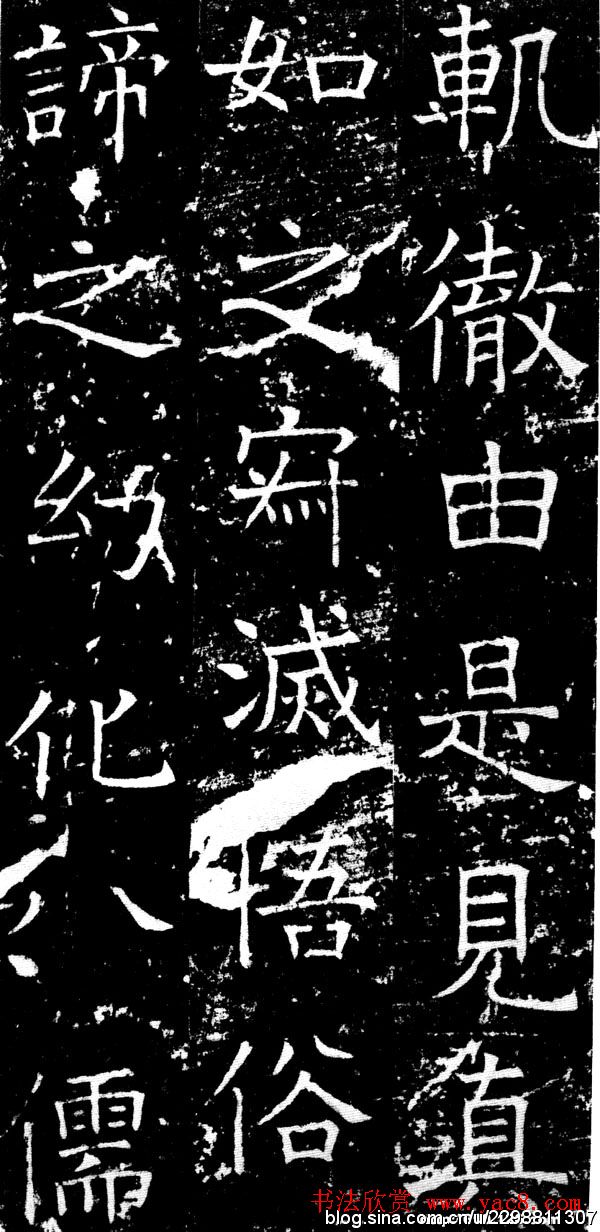 軌徹由是見真
如之寂滅悟俗
諦之化八儒
书法欣赏 www.yac8.com
blog.sina.com.cn/u/2298811307